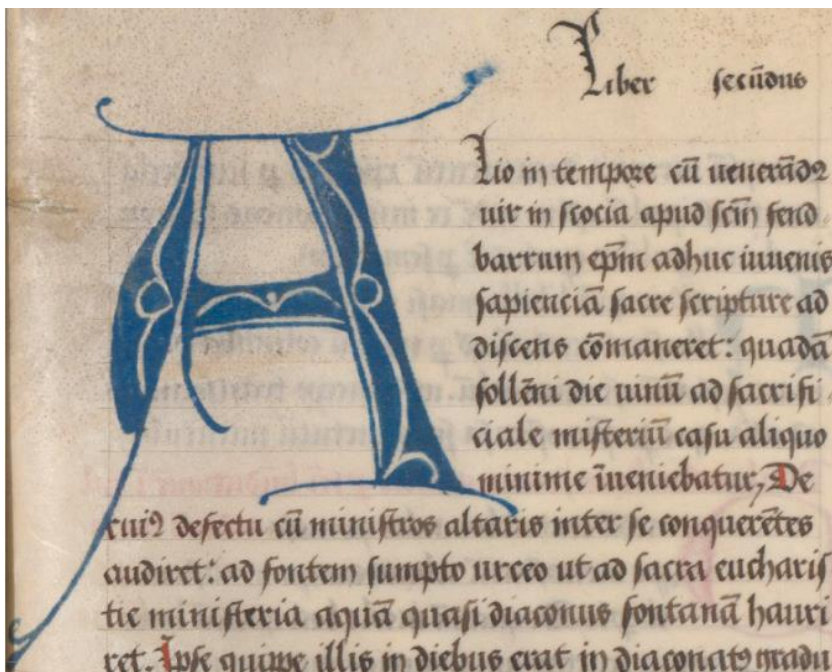 Liber secūdus
Alio in tempore cū uenerādꝰ
uir in scocia apud scm̄ fend
barrum ep̄m adhuc iuuenis
sapienciā sacre scripture ad
discens cōmaneret: quadā
sollēni die uinū ad sacrifi
ciale misteriū casu aliquo
minime īueniebatur, De
cuiꝰ defectu cū ministros altaris inter se conquerētes
audiret: ad fontem sumpto urceo ut ad sacra eucharis
tie ministeria aquā quasi diaconus fontanā hauri
ret. Ipse quippe illis in diebus erat in diaconatꝰ gradu